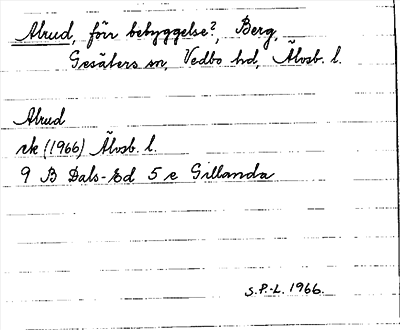 Alrud, förr bebyggelse?, Berg,
Gesäters sn, Vedbo hd, Älvsb. l.
Alrud
rk (1966) Älvsb. l.
9 B Dals-Ed 5 e Gillanda
S.P.-L. 1966.